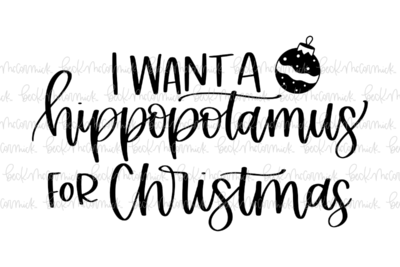 I WANT A
hippopotamus
FOR Christmas